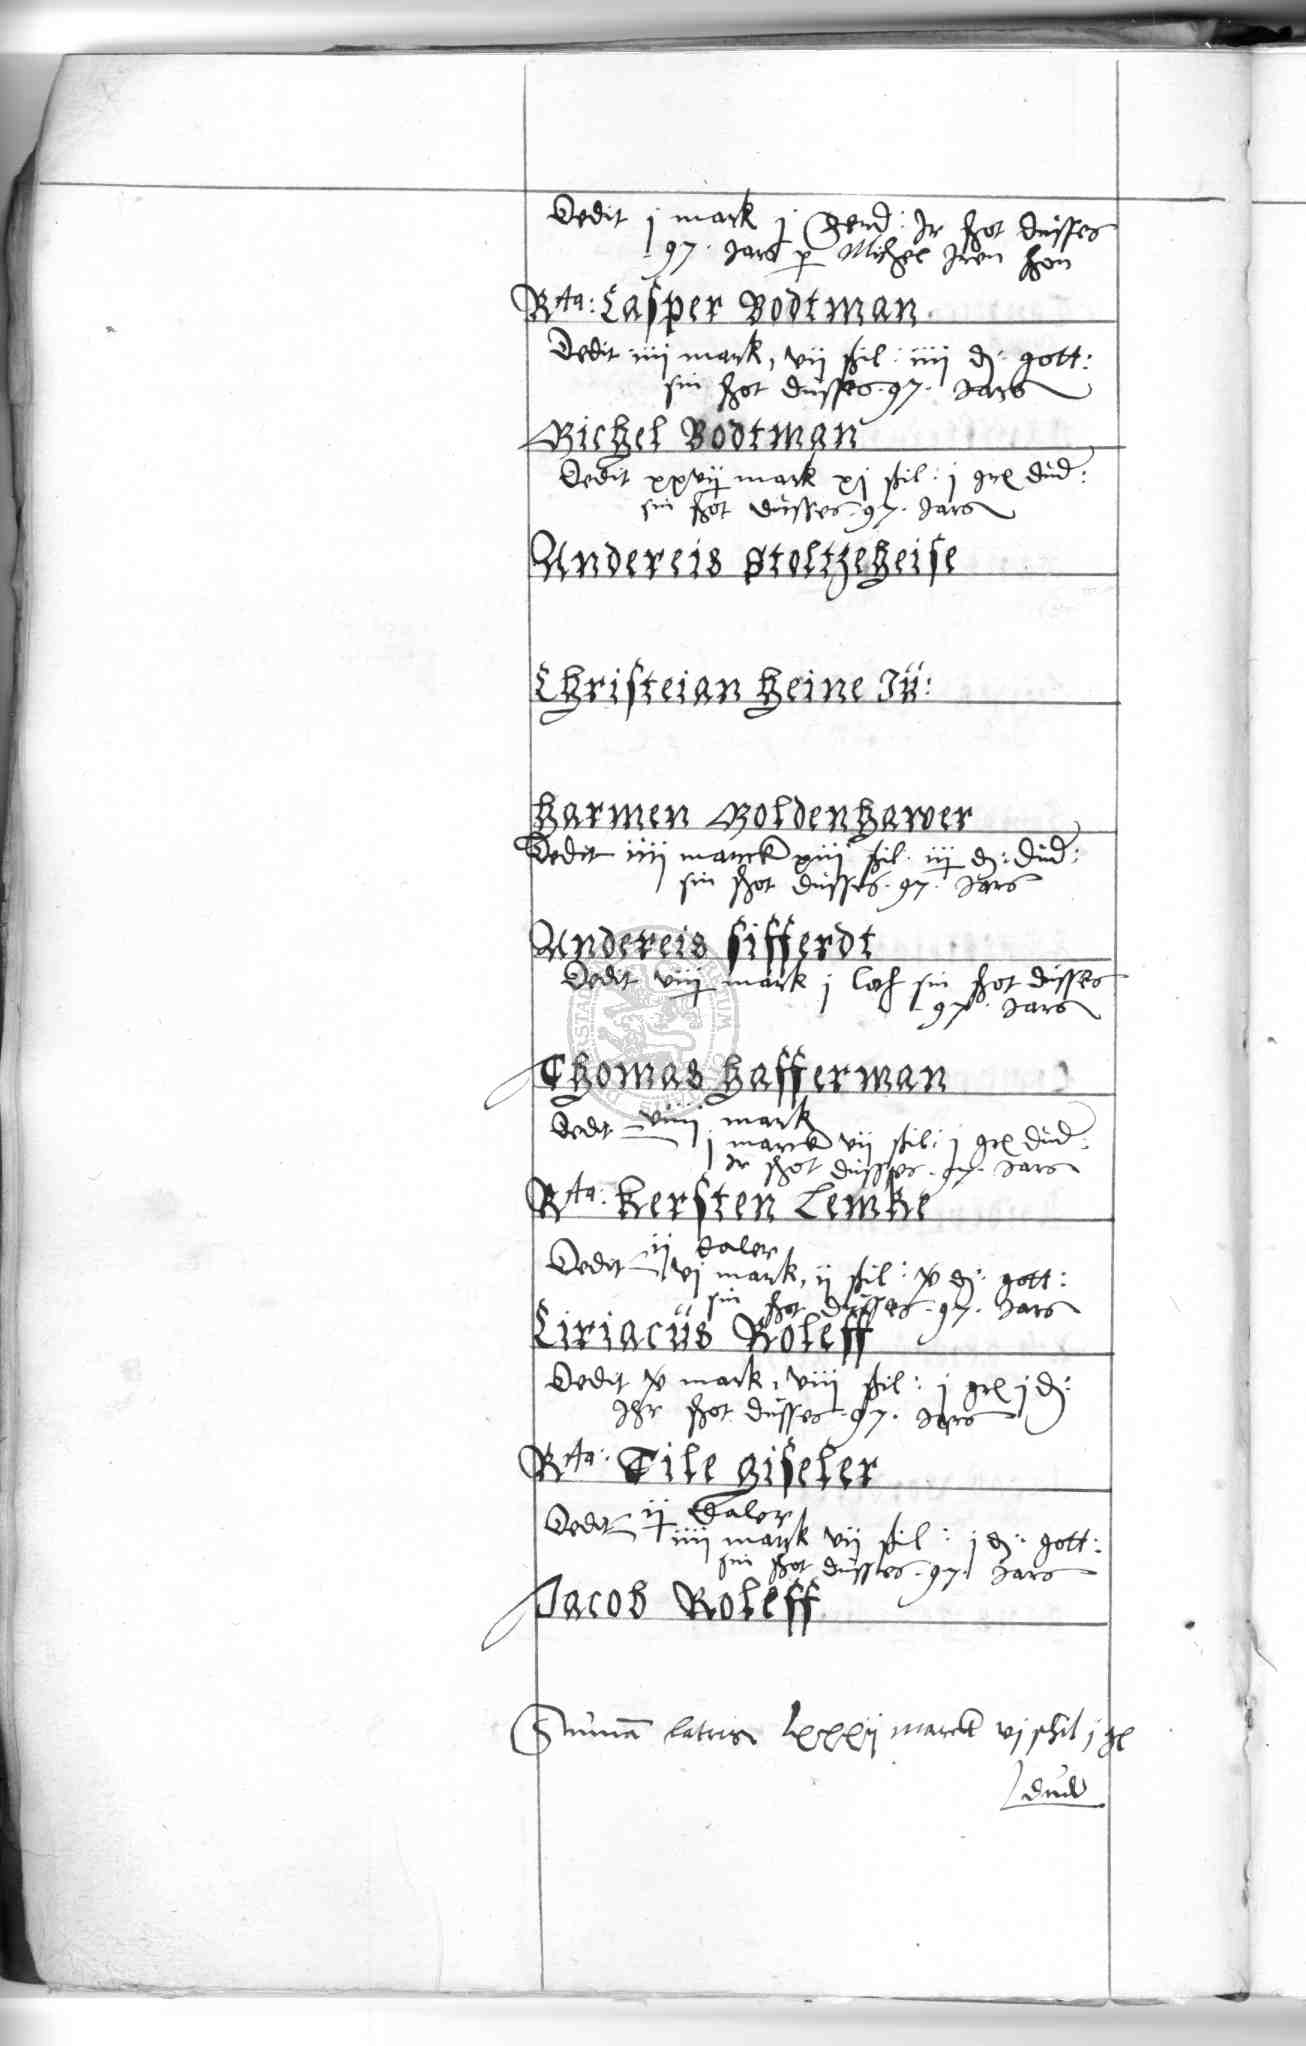 Dedit j mark j ferd: Ir shot düsses
97. Jars p Michel Iren son
Rta: Casper Bodtman
Dedit iiij mark, vij shil: iiij d: gott:
sin shot düsses. 97. Jars
Michel Bodtman
Dedit xxvij mark xj shil: j gr düd:
sin shot düsses. 97. Jars
Andereis Stoltzeheise
Christeian Heine Jü:
Harmen Moldenhawer
Dedit iiij marck xiij shil. iij d: düd:
sin shot düsses. 97. Jars
Andereis Sifferdt
Dedit viij mark j loth sin shot düsses
97. Jars
Thomas Hafferman
Dedit viiij mark
j marck vij shil: j gr düd:
Ir shot düsses. 97. Jars
Rta: Kersten Lemke
ij daler
Dedit vj mark, ij shil: v d: gott:
sin shot düsses. 97. Jars
Ciriacüs Roleff
Dedit v mark, viij shil: j gr j d:
Ihr shot düsses. 97. Jars
Rta: Tile Giseler
Dedit ij daler
iiij mark vij shil: j d: gott:
sin shot düsses. 97. Jars
Jacob Roleff
Summa lateris Lxxxij marck vj shil j gr
düd